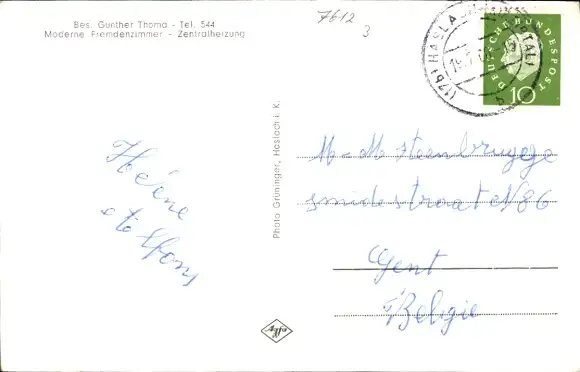 Bes. Gunther Thoma - Tel. 544
Moderne Fremdenzimmer - Zentralheizung
7612
3
(17b) HASLACH
DEUTSCHE BUNDESPOST
10
Helene
et Alfons
Photo Grüninger, Haslach i. K.
M-M Steenbrugge
smidestraat N 86
Gent
Belgie
efky